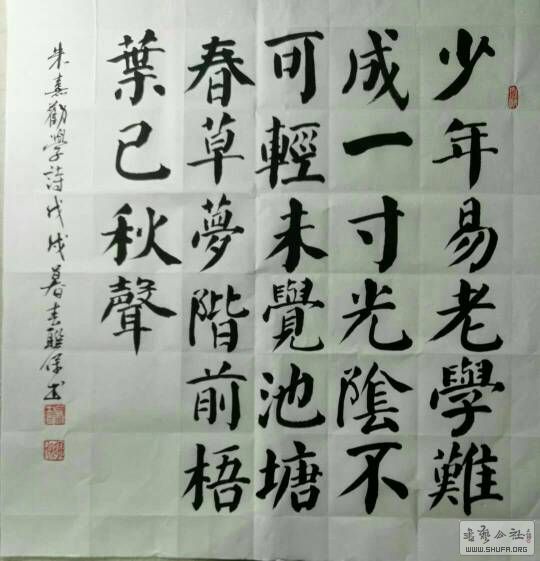 少年易老學難
成一寸光陰不
可輕未覺池塘
春草夢階前梧
葉已秋聲
朱熹勸學詩戊戌暮春聯保书
WWW.SHUFA.ORG